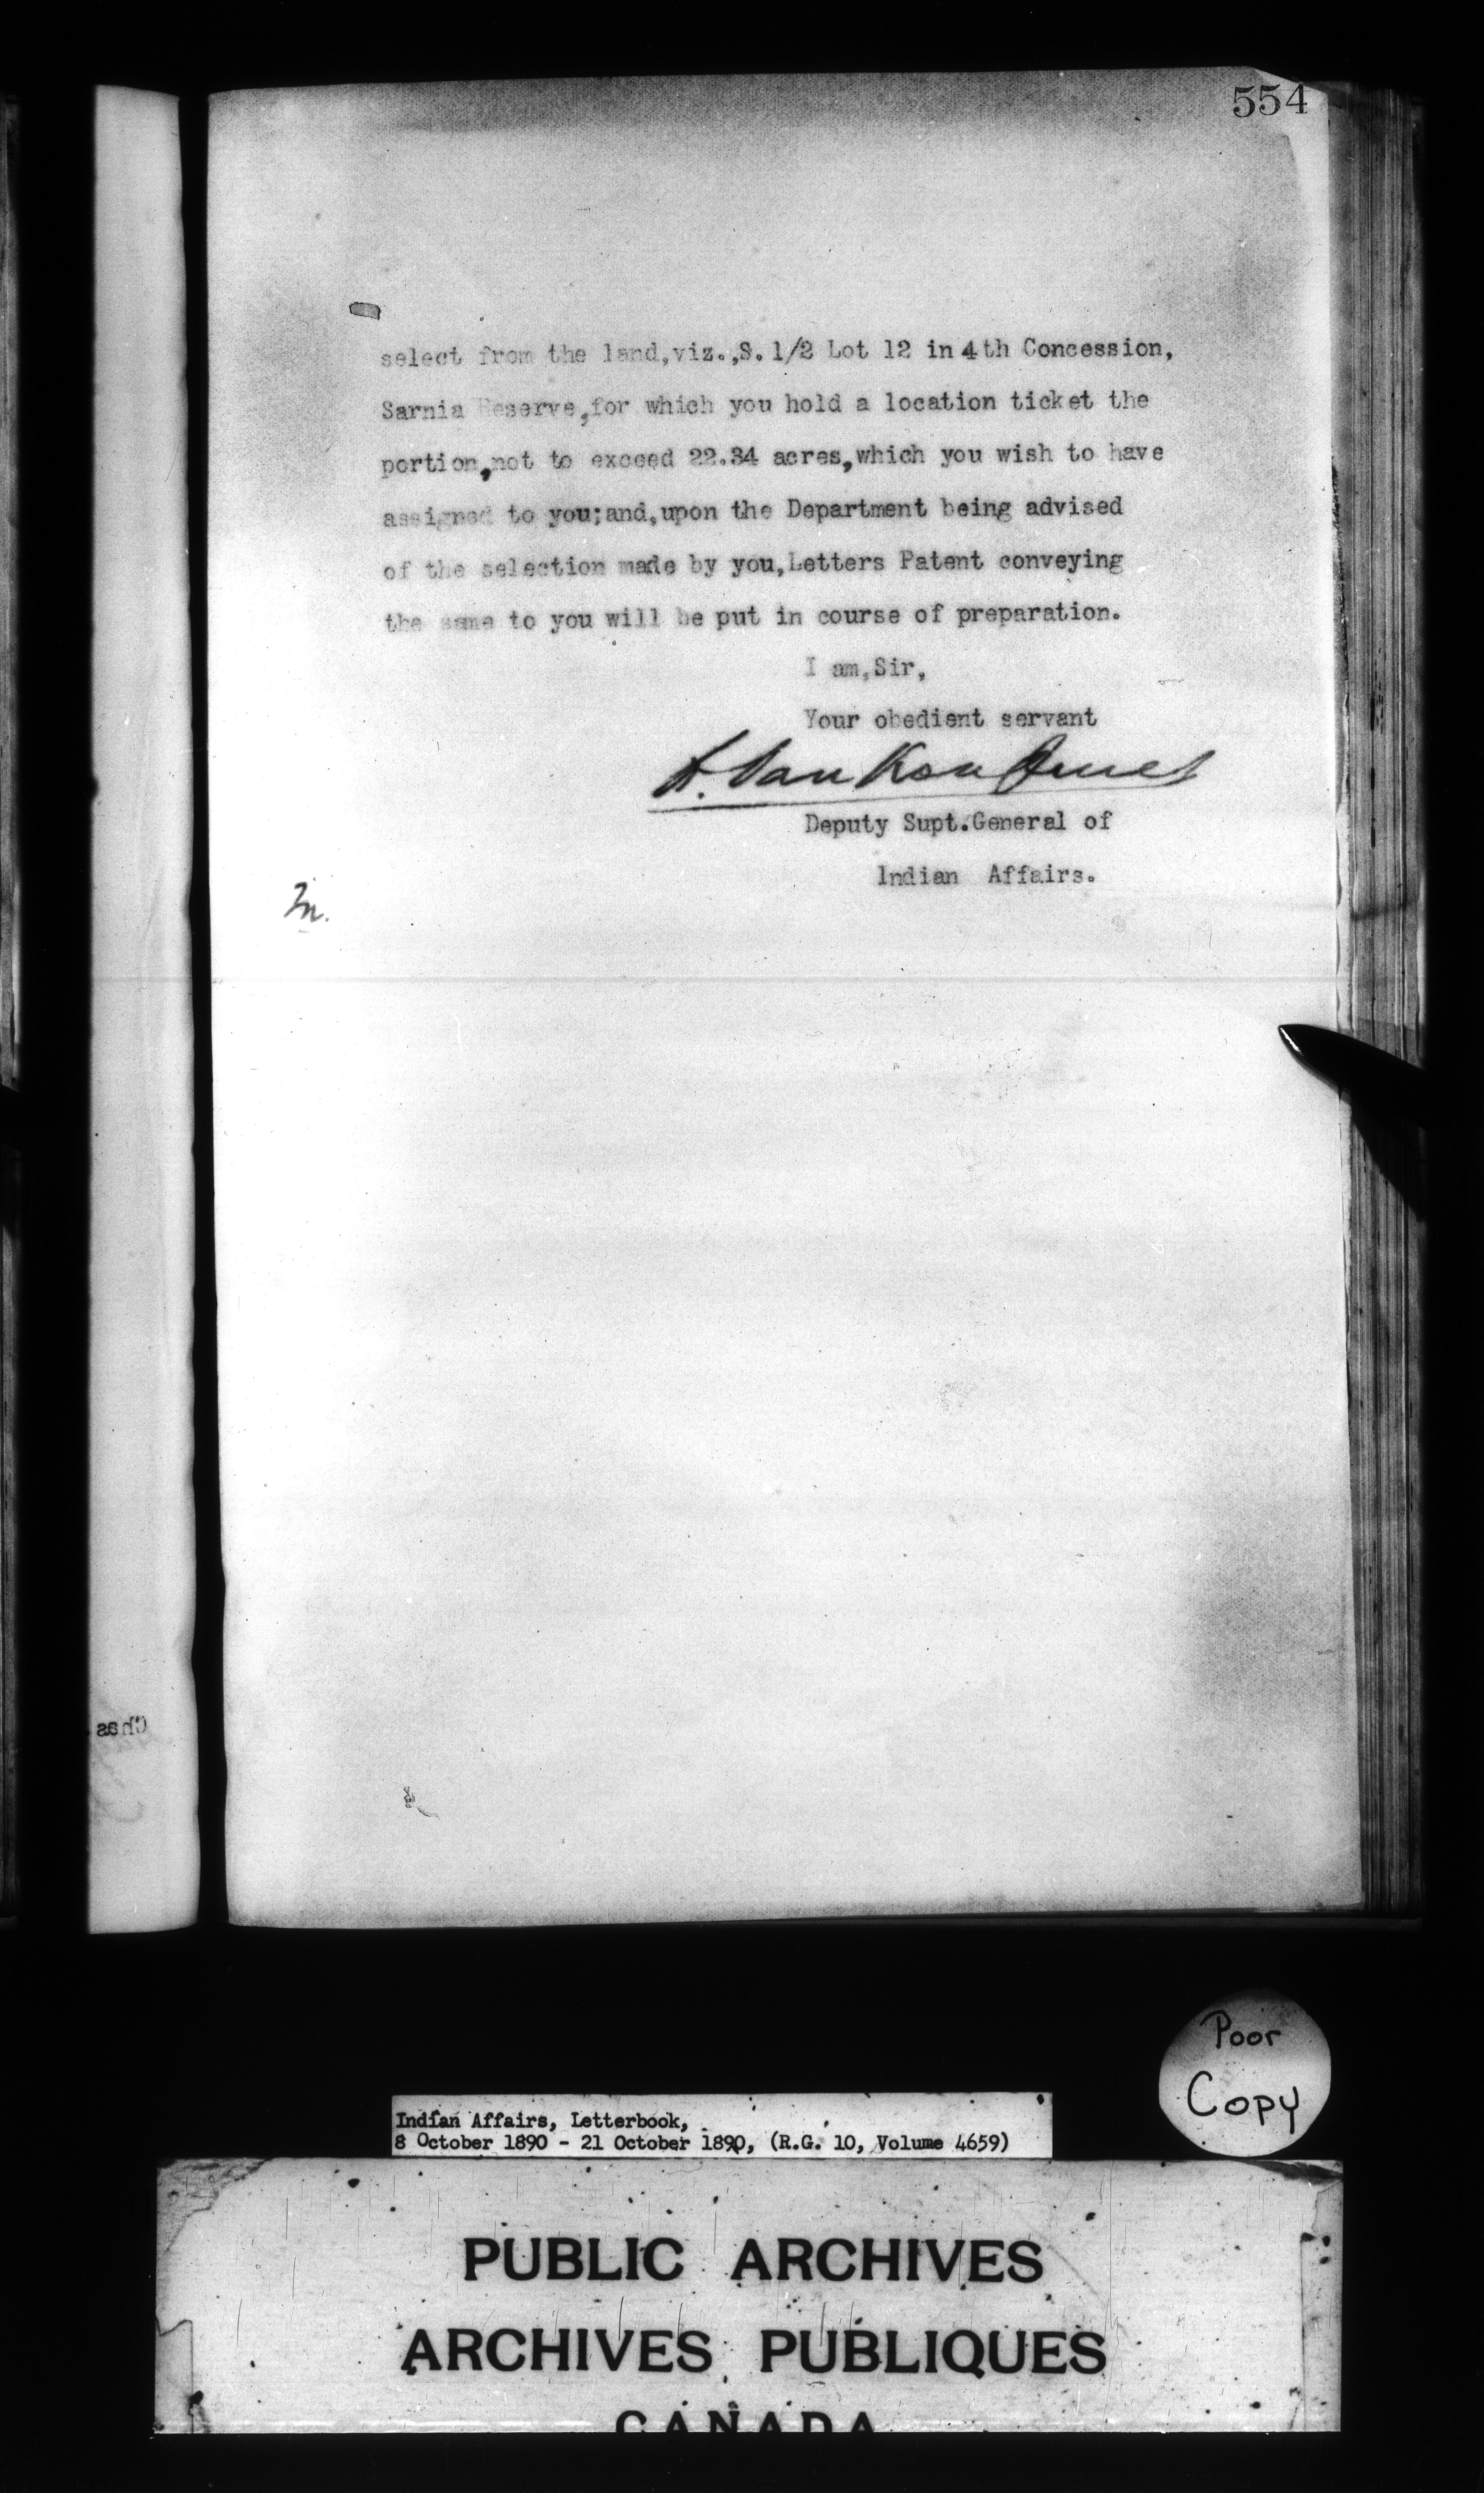 554
select from the land,viz.,S. 1/2 Lot 12 in 4th Concession,
Sarnia Reserve,for which you hold a location ticket the
portion,not to exceed 22.34 acres,which you wish to have
assigned to you;and,upon the Department being advised
of the selection made by you,Letters Patent conveying
the same to you will be put in course of preparation.
I am,Sir,
Your obedient servant
L. VanKoughnet
Deputy Supt.General of
Indian Affairs.
Chas
Poor
Copy
Indian Affairs, Letterbook,
8 October 1890 - 21 October 1890, (R.G. 10, Volume 4659)
PUBLIC ARCHIVES
ARCHIVES PUBLIQUES
CANADA